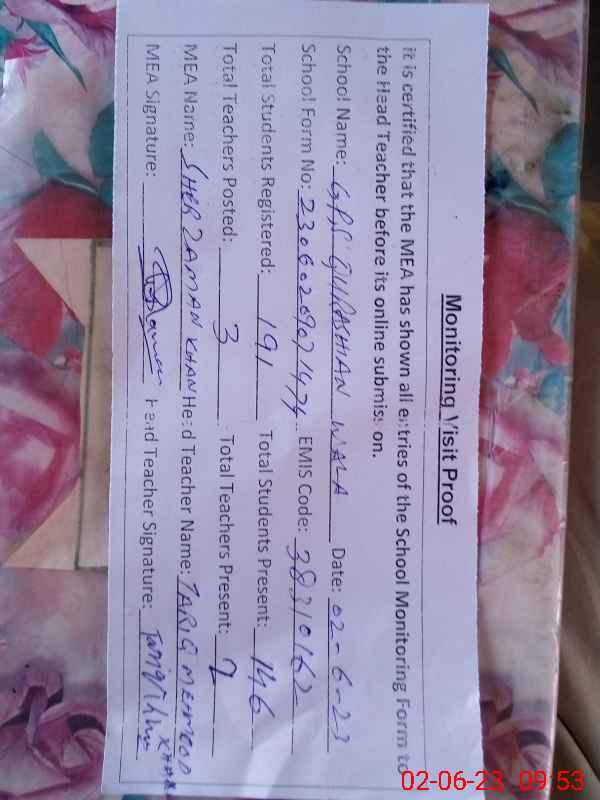 Monitoring Visit Proof
it is certified that the MEA has shown all entries of the School Monitoring Form to
the Head Teacher before its online submission.
School Name: GPS GULABSHAN WALA Date: 02-6-23
School Form No: 23060209071474 EMIS Code: 38310162
Total Students Registered: 191 Total Students Present: 146
Total Teachers Posted: 3 Total Teachers Present: 2
MEA Name: SHER ZAMAN KHAN Head Teacher Name: TARIQ MEHMOOD
MEA Signature: Head Teacher Signature:
02-06-23 09:53